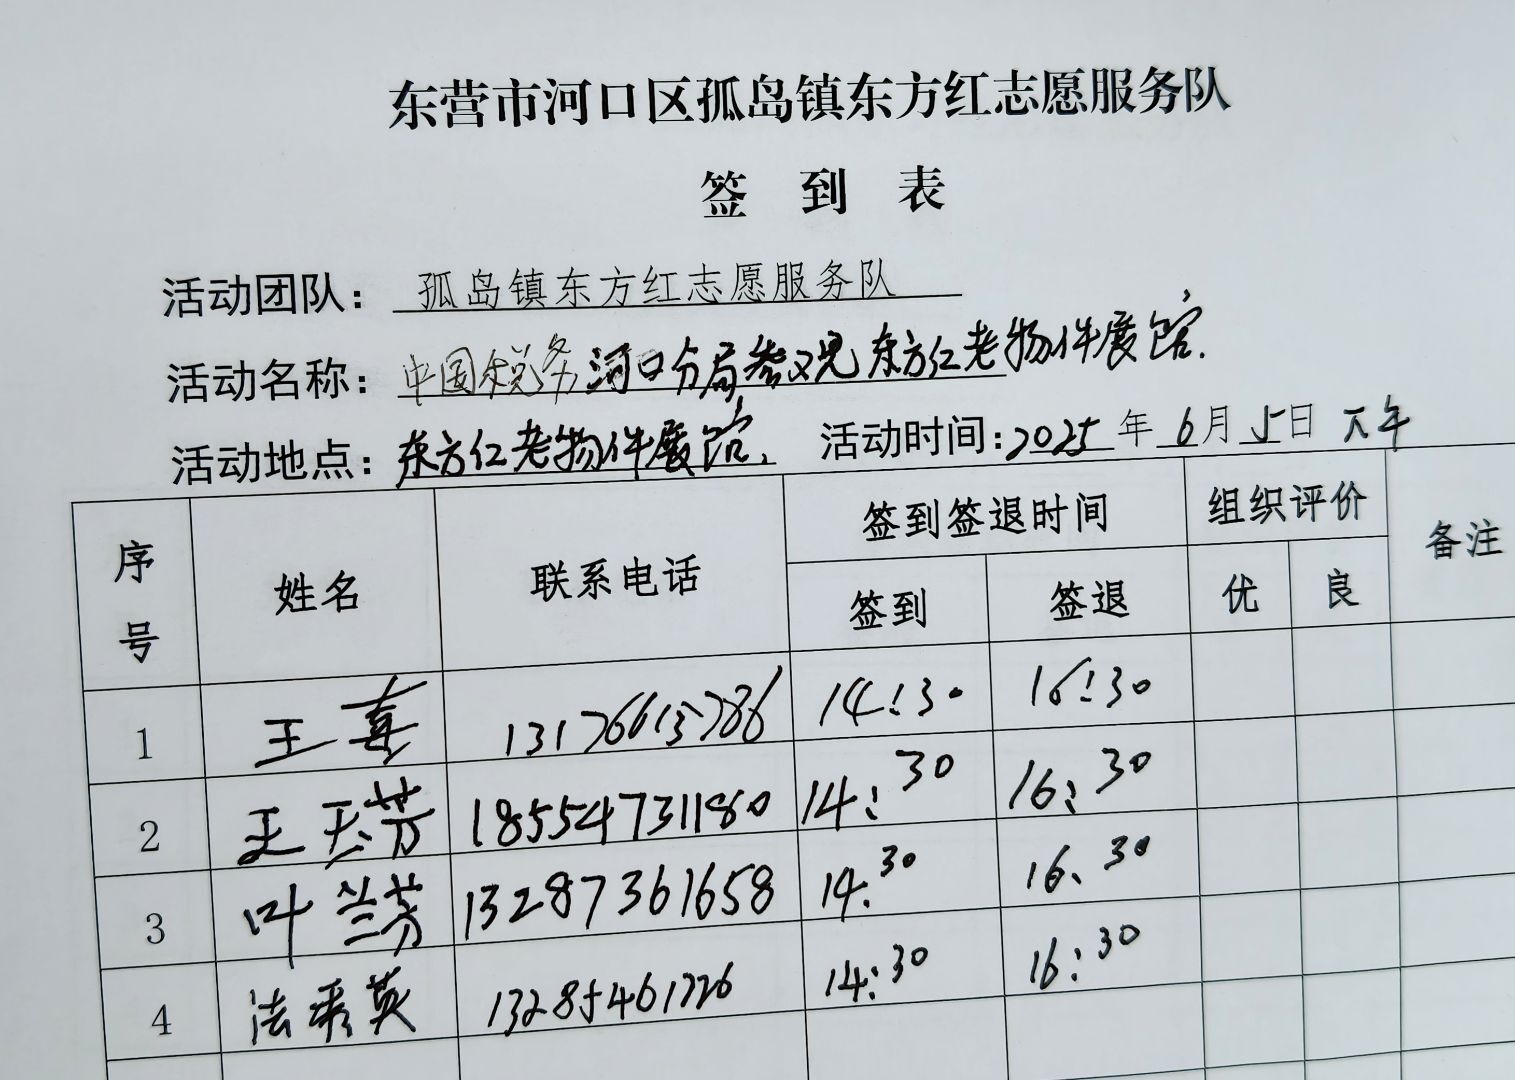 东营市河口区孤岛镇东方红志愿服务队
签到表
活动团队：孤岛镇东方红志愿服务队
活动名称：中国税务河口分局参观东方红老物件展馆.
活动地点：东方红老物件展馆. 活动时间：2025年6月5日 下午
序号 姓名 联系电话 签到签退时间 组织评价 备注
签到 签退 优 良
1 王喜 13176613786 14:30 16:30
2 王玉芳 18554731180 14:30 16:30
3 叶兰芳 13287361658 14.30 16、30
4 法秀英 13285461726 14:30 16:30